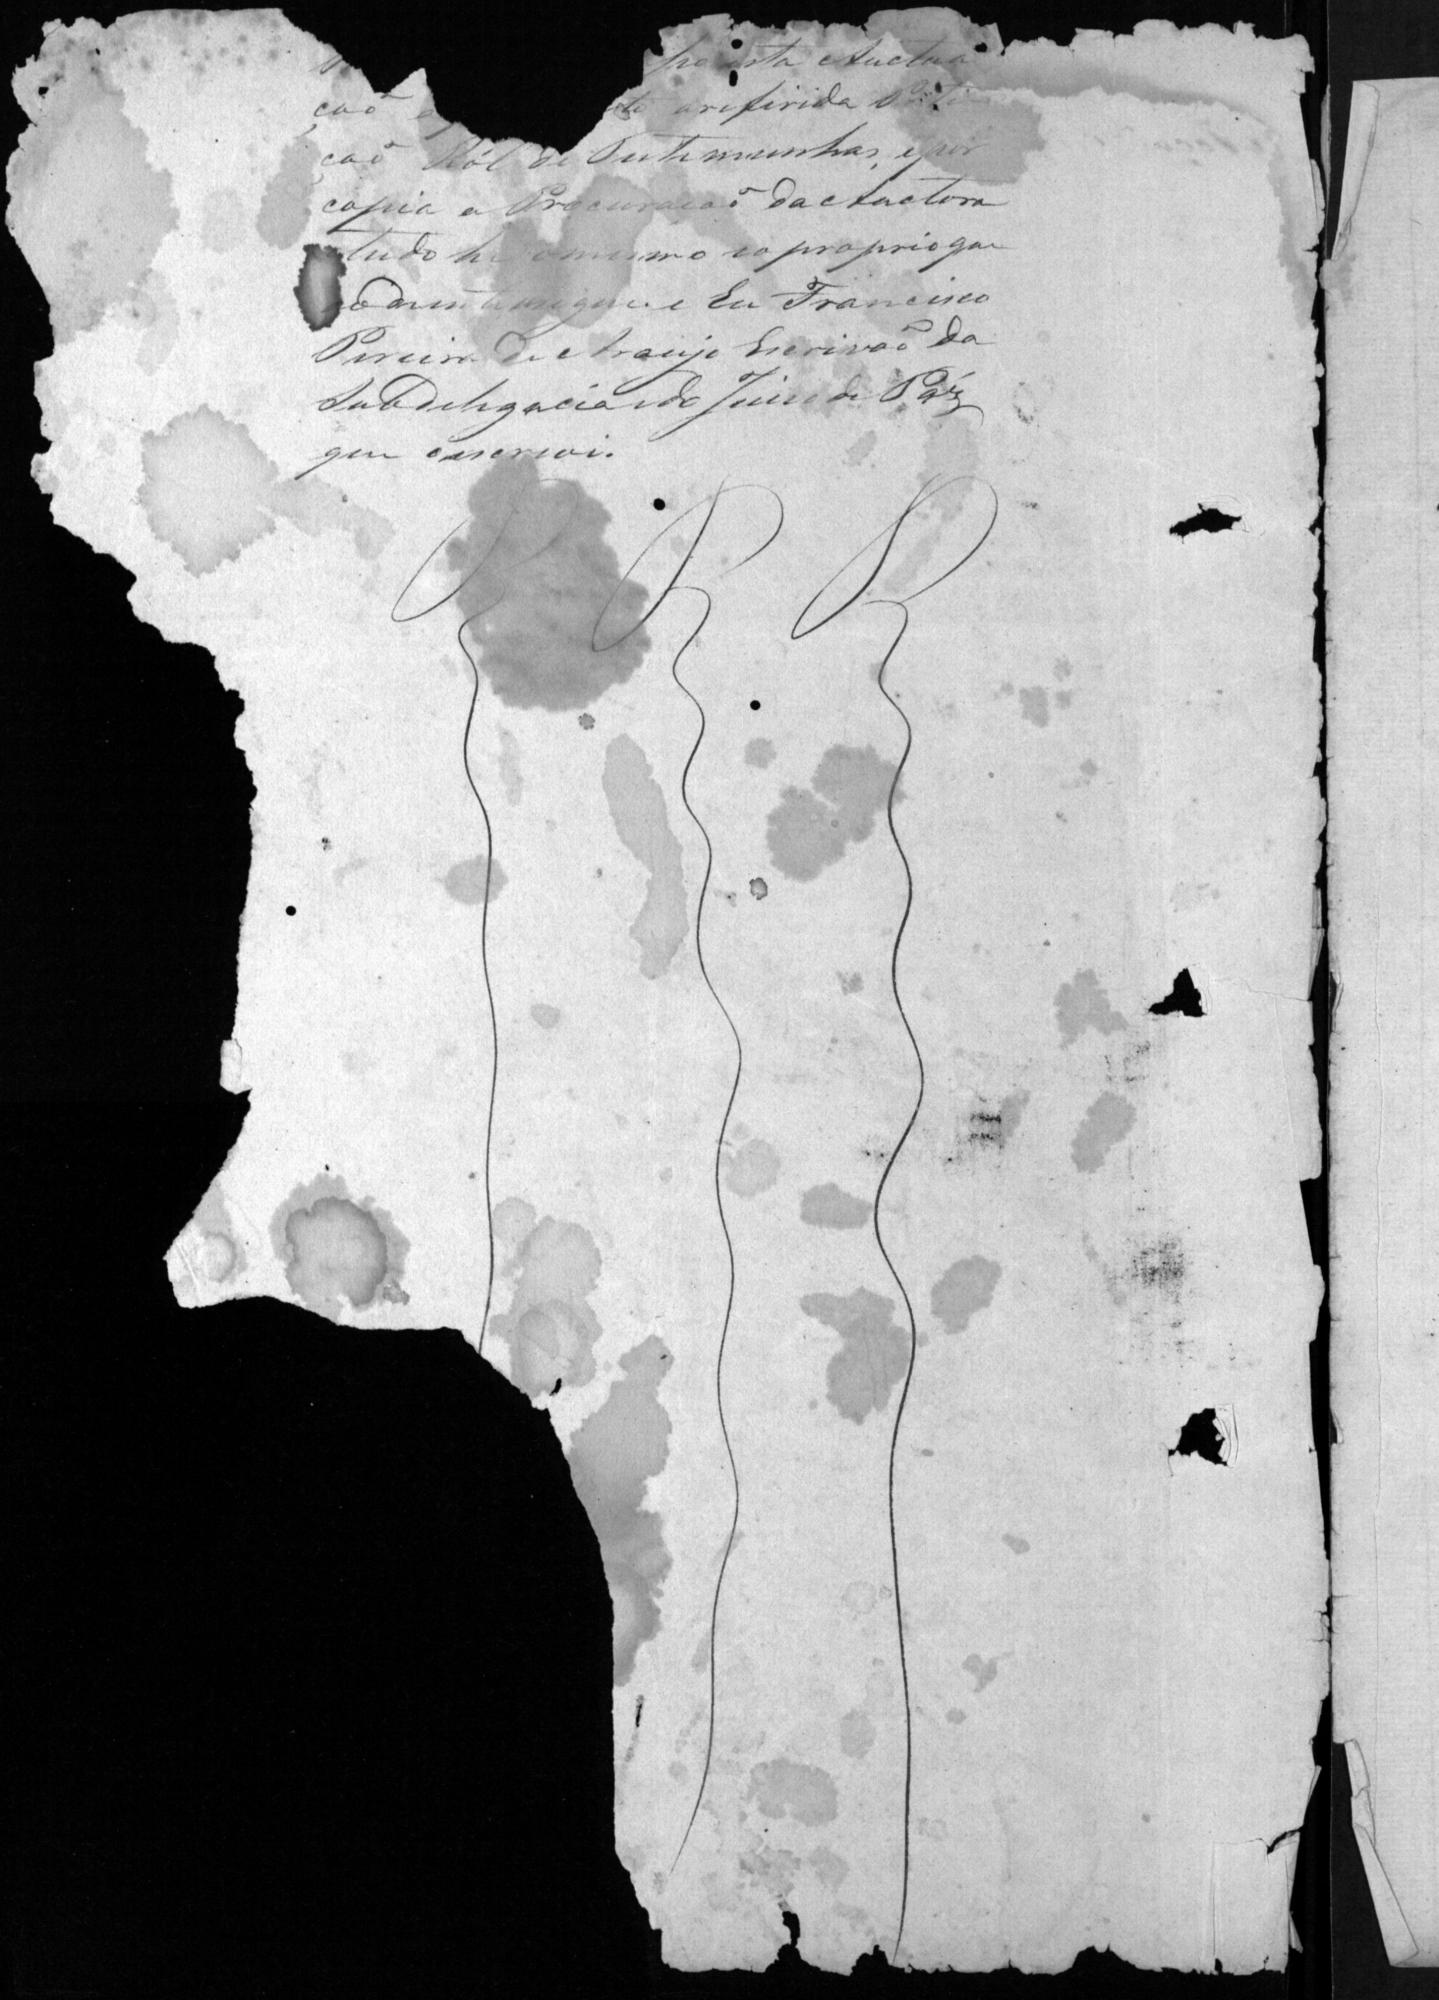 por esta Auctua
caõ e to a referida Peti
caõ Ról de Testimunhas, e por
copia a Procuracaõ da Auctora
tudo he o mesmo e o proprio que
Eu Francisco
Pereira de Araujo Escrivaõ da
Subdelegacia e do Juiso de Páz
que o escrevi.